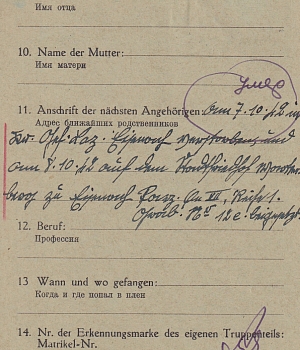 Имя отца
10. Name der Mutter:
Имя матери
умер
11. Anschrift der nächsten Angehörigen: am 7.10.42 im
Адрес ближайших родственников
Res. Laz. Eisenach verstorben und
am 8.10.42 auf dem
zu Eisenach Parz. No VII, Reihe 1.
Grab. No 12c. beigesetzt
12. Beruf:
Профессия
13 Wann und wo gefangen:
Когда и где попал в плен
14. Nr. der Erkennungsmarke des eigenen Truppenteils:
Matrikel-Nr.